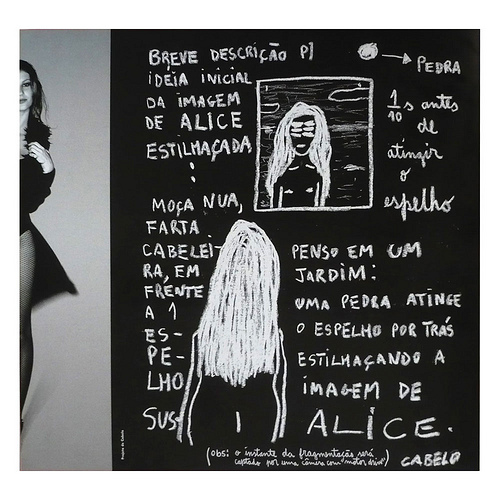 BREVE DESCRIÇÃO P/
IDEIA INICIAL
DA IMAGEM
DE ALICE
ESTILHAÇADA
:
MOÇA NUA,
FARTA
CABELEI-
RA, EM
FRENTE
A 1
ES-
PE-
LHO
SUS
PEDRA
1/10 s antes
de
atingir
o
espelho
PENSO EM UM
JARDIM:
UMA PEDRA ATINGE
O ESPELHO POR TRÁS
ESTILHAÇANDO A
IMAGEM DE
ALICE.
(obs: o instante da fragmentação será
captado por uma câmera com "motor drive")
CABELO
Projeto de Cabelo